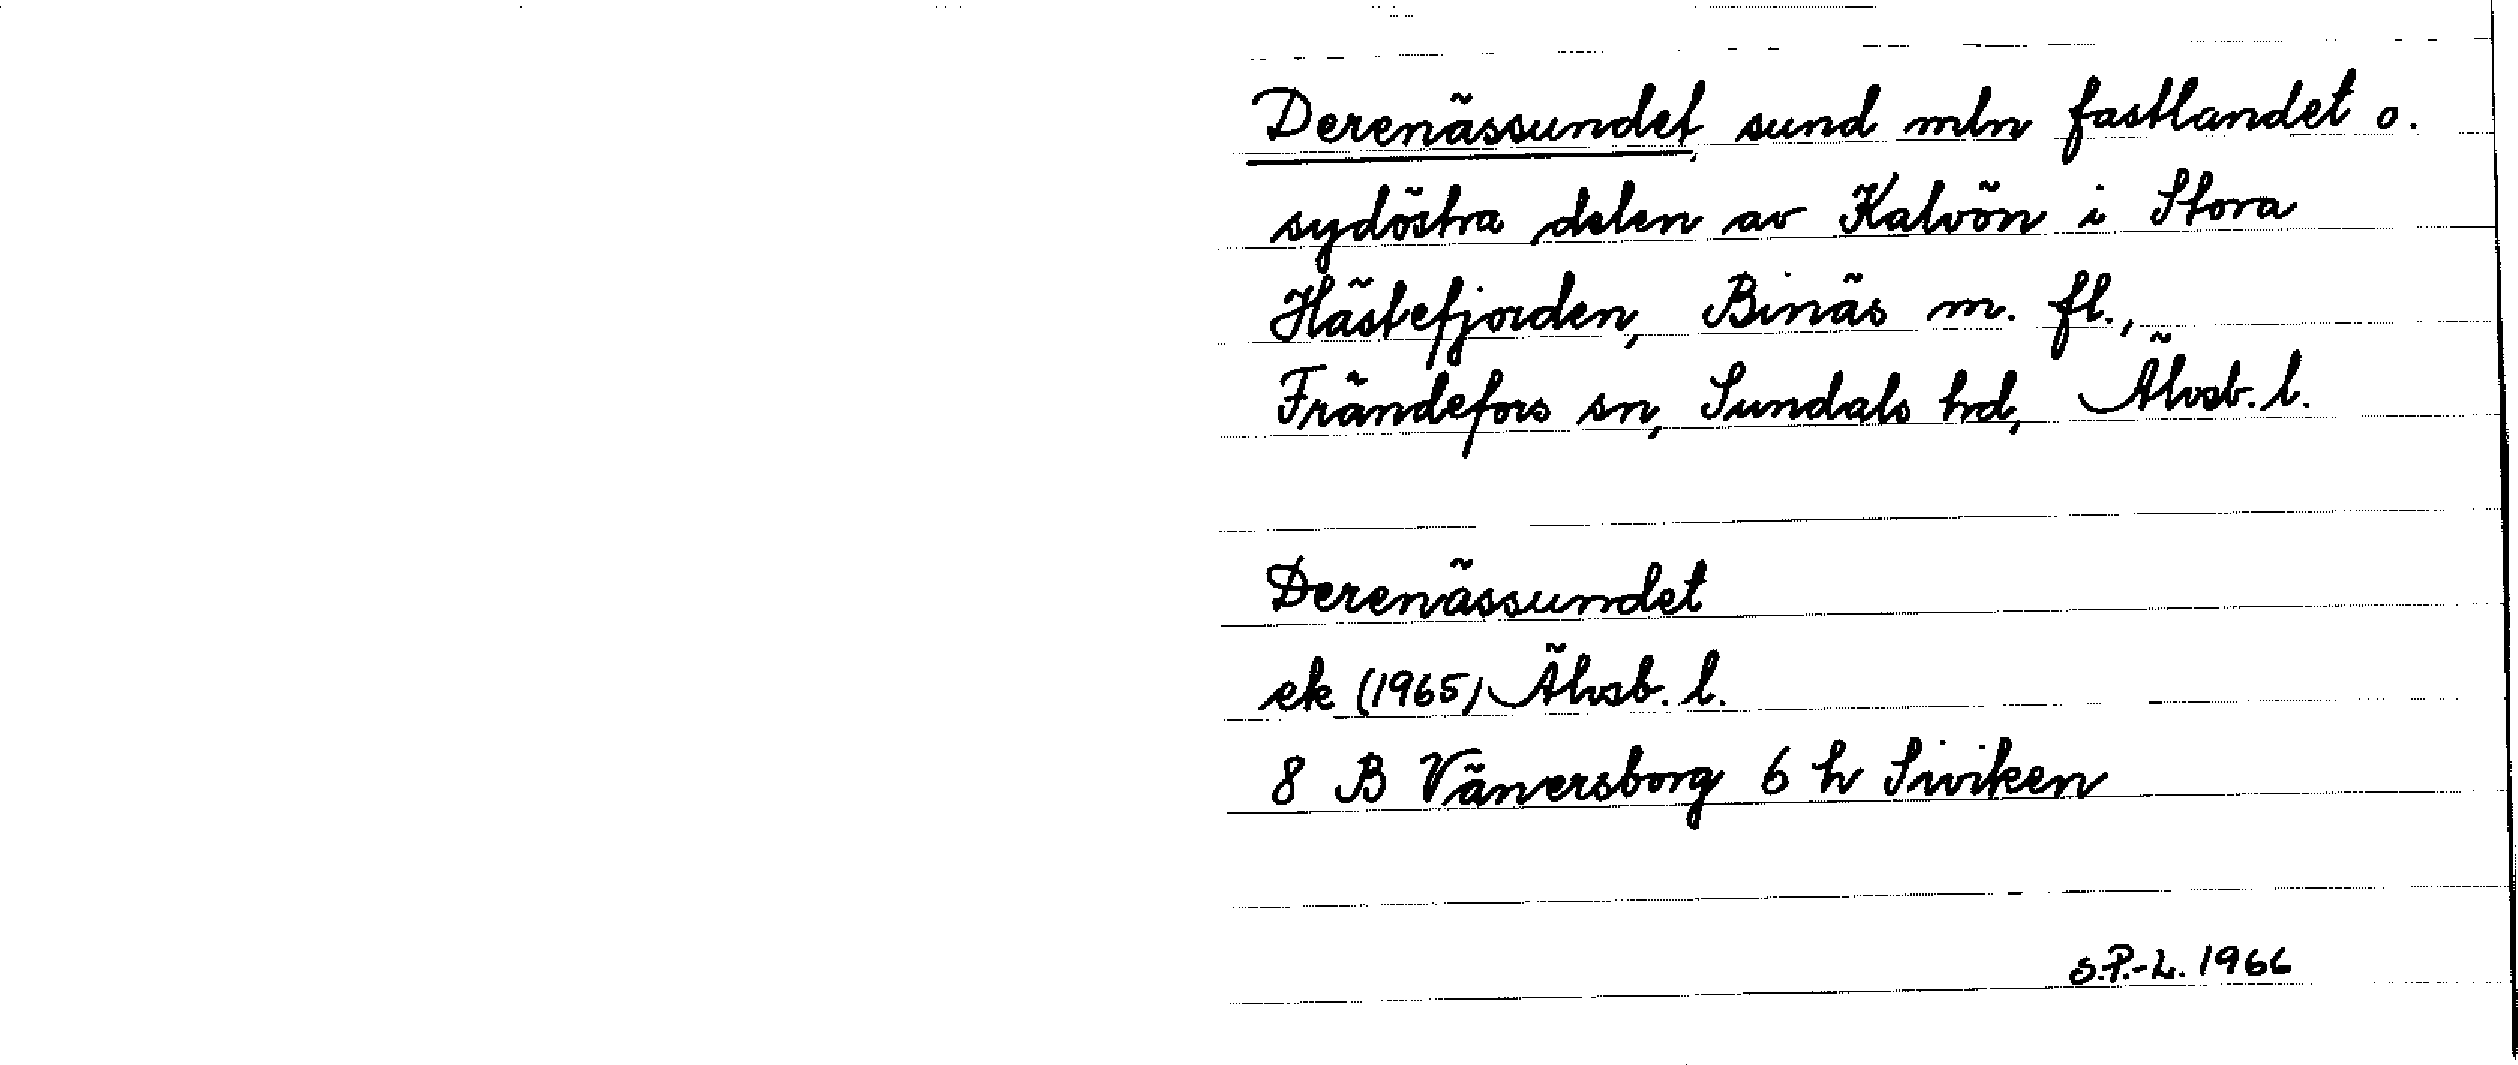 Derenässundet, sund mln fastlandet o.
sydöstra delen av Kalvön i Stora
Hästefjorden, Binäs m. fl.,
Frändefors sn, Sundals hd, Älvsb. l.
Derenässundet
ek (1965) Älvsb. l.
8 B Vänersborg 6 h Siviken
S.P.-L. 1966